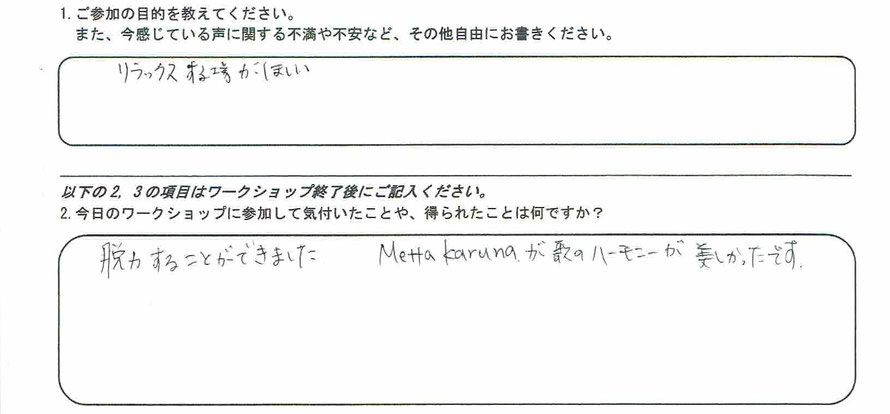 1. ご参加の目的を教えてください。
また、今感じている声に関する不満や不安など、その他自由にお書きください。
リラックスする場がほしい
以下の2, 3の項目はワークショップ終了後にご記入ください。
2. 今日のワークショップに参加して気付いたことや、得られたことは何ですか？
脱力することができました Metta karuna.が歌のハーモニーが美しかったです.